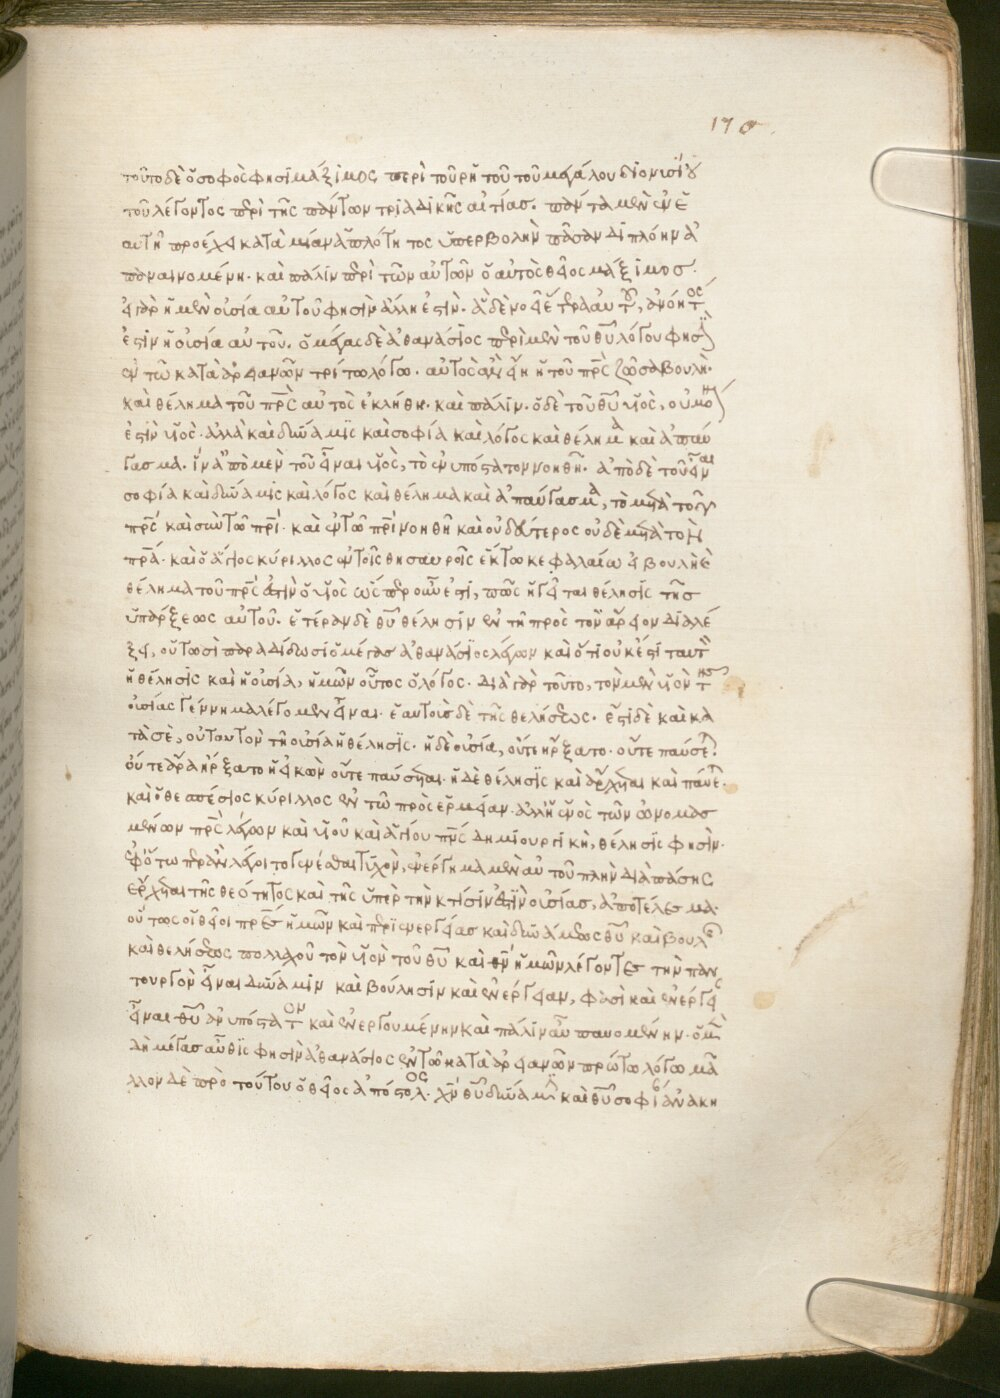 170
τοῦτο δὲ ὁ σοφὸς φησὶ μάξιμος περὶ τοῦ ρητοῦ τοῦ μεγάλου διονυσίου
τοῦ λέγοντος περὶ τῆς πάντων τριαδικῆς αἰτίας. πάντα μὲν ἐν
αὐτῇ προέχει κατὰ μίαν ἁπλότητος ὑπερβολὴν πᾶσαν διπλόην
καὶ πάλιν περὶ τῶν αὐτῶν ὁ αὐτὸς θεῖος μάξιμος.
εἰ γὰρ ἡ μὲν οὐσία αὐτοῦ φησὶν ἄλλη ἐστὶν.
ἐστὶν ἡ οὐσία αὐτοῦ. ὁ μέγας δὲ ἀθανάσιος περὶ μὲν τοῦ θεοῦ λόγου φησὶν
ἐν τῶ κατὰ ἀρειανῶν τρίτω λόγω. αὐτὸς ἂν εἴη ἡ τοῦ πρς ζῶσα βουλὴ.
καὶ θέλημα τοῦ πρς αὐτὸς ἐκλήθη. καὶ πάλιν. ὁ δὲ τοῦ θυ υἱὸς, οὐ μόνον
ἐστὶν υἱὸς. ἀλλὰ καὶ δύναμις καὶ σοφία καὶ λόγος καὶ θέλημα καὶ ἀπαύ
γασμα. ἵν' ἀπὸ μὲν τοῦ εἶναι υἱὸς, τὸ ἐνυπόστατον νοηθῇ. ἀπὸ δὲ τοῦ εἶναι
σοφία καὶ δύναμις καὶ λόγος καὶ θέλημα καὶ ἀπαύγασμα, τὸ μετὰ τοῦ
πρς καὶ σὺν τῶ πρι. καὶ ἐν τῶ πρι νοηθῇ καὶ οὐ δεύτερος οὐδὲ μετὰ τὸν
πρα. καὶ ὁ ἅγιος κύριλλος ἐν τοῖς θησαυροῖς ἕκτω κεφαλαίω εἰ βουλὴ
θέλημα τοῦ πρς ἐστὶν ὁ υἱὸς ὥσπερ οὖν ἐστὶ, πῶς ἡγεῖται θέλησις τῆς
ὑπάρξεως αὐτοῦ. ἑτέραν δὲ θυ θέλησιν ἐν τῇ πρὸς τὸν ἄρειον διαλέ
ξει, οὕτωσὶ παραδίδωσιν ὁ μέγας ἀθανάσιος λέγων καὶ ὅτι οὐκ ἔστι ταυτὸν
ἡ θέλησις καὶ ἡ οὐσία, ἡμῶν οὗτος ὁ λόγος. διὰ γὰρ τοῦτο, τὸν μὲν υἱὸν τῆς
οὐσίας γέννημα λέγομεν εἶναι. ἐστὶ δὲ καὶ κα
τὰ σὲ, οὐ ταυτὸν τῇ οὐσία ἡ θέλησις. ἡ δὲ οὐσία, οὔτε ἤρξατο. οὔτε παύσεται.
οὔτε ἄρα ἤρξατο ἡ εἰκὼν οὔτε παύσεται. ἡ δὲ θέλησις καὶ ἄρχεται καὶ παύεται.
καὶ ὁ θεσπέσιος κύριλλος ἐν τῶ πρὸς ἑρμείαν. ἀλλ' ἡ ἑνὸς τῶν ὠνομασ
μένων πρς λέγων καὶ υἱοῦ καὶ ἁγίου πνς δημιουργικὴ, θέλησις φησὶν.
ἐφ' ὅτω περ ἂν λέγοιτο γενέσθαι τυχὸν, ἐνέργημα μὲν αὐτοῦ πλὴν διὰ πάσης
ἔρχεται τῆς θεότητος καὶ τῆς ὑπὲρ τὴν κτίσιν ἐστὶν οὐσίας, ἀποτέλεσμα.
οὕτως οἱ θεῖοι πρες ἡμῶν καὶ περὶ ἐνεργείας καὶ δυνάμεως θυ καὶ βουλῆς
καὶ θελήσεως πολλαχοῦ τὸν υἱὸν τοῦ θυ καὶ ἡμῶν λέγοντες τὴν παν
τουργὸν εἶναι δύναμιν καὶ βούλησιν καὶ ἐνέργειαν, φασὶ καὶ ἐνέργειαν
εἶναι θυ ἀνυπόστατον καὶ ἐνεργουμένην καὶ πάλιν αὖ παυομένην.
δὴ μέγας αὖθις φησὶν ἀθανάσιος ἐν τῶ κατὰ ἀρειανῶν πρώτω λόγω μᾶ
λλον δὲ πρὸ τούτου ὁ θεῖος ἀπόστολος. χν θυ δύναμιν καὶ θυ σοφίαν ἀνακη